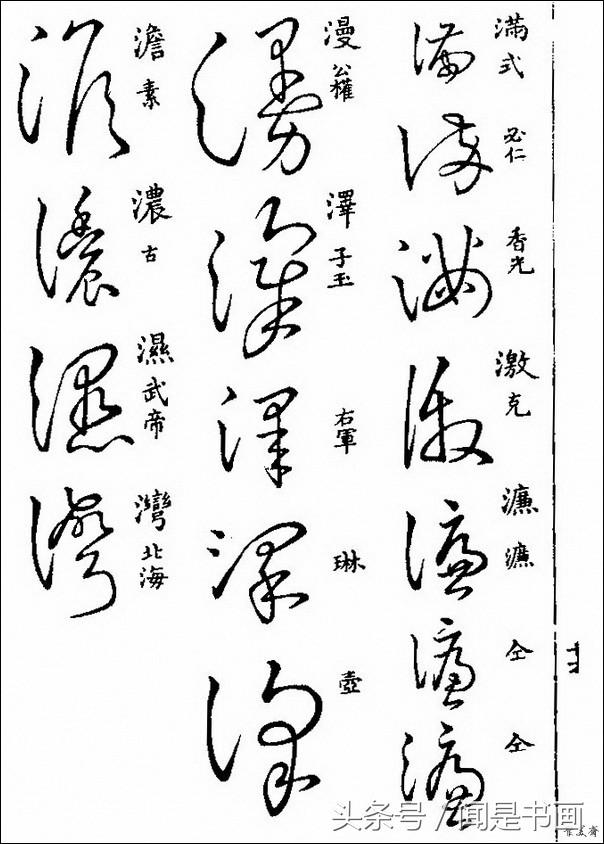 滿式
必仁
香光
激克
濂濂
仝
仝
漫公權
澤子玉
右軍
琳
壺
澹素
濃古
濕武帝
灣北海
头条号 / 闻是书画